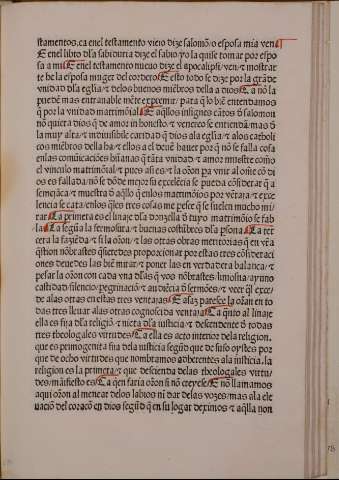 stamentos. ca enel testamento viejo dize salomō/ o esposa mia ven
E enel libro dla sabiduria dize el sabio/ yo la quise tomar por espo
sa a mi E enel testamento nueuo dize el apocalipsi/ ven ⁊ mostrar
te he la esposa muger del cordero E esto todo se dize por la grāde
vnidad dla eglīa ⁊ delos buenos miēbros della a dios Ca nō la
puede mas entrañable mēte expremir para q̄ lo biē entendamos
q̄ por la vnidad matrimōial E aq̄llos insignes cātos d̄ salomon
nō quieta dios q̄ de amor in honesto ⁊ venereo se entiendā mas d̄
la muy alta ⁊ indiuisible caridad q̄ dios ala eglīa ⁊ alos catholi
cos miēbros della ha ⁊ ellos a el deuē hauer por q̄ nō se falla cosa
enlas comūicaciōes hūanas q̄ tāta vnidad ⁊ amor muestre como
el vinculo matrimōial
es es fallada/ nō se dōde mejor su excelēcia se pueda cōsiderar q̄ a
semejāça ⁊ muestra d̄ aq̄llo q̄ enlos matrimōios por v̄tura ⁊ exce
lencia se cata/ enlos q̄les tres cosas me pesce q̄ se suelen mucho mi
rar La primera es el linaje dla donzella d̄ cuyo matrimōio se fab
la La segūda la fermosura ⁊ buenas costūbres dla psona La ter
cera la fazieda
q̄stion nōbrastes
ones deue des las biē mirar ⁊ poner las en verdadera balança ⁊
pesar la oron con cada vna dlas q̄ vos nōbrastes limosna ayuno
castidad silencio peregrinaciō ⁊ audiēcia d̄ sermōes ⁊ veer q̄l exce
de alas otras en estas tres ventajas E asaz paresce la oron en to
das tres lleuar alas otras cognoscida ventaja Ca q̄nto al linaje
ella es fija dla religiō ⁊ nieta dla iusticia ⁊ descendente d̄ todas
tres theologales virtudes Ca ella es acto interior dela religion.
que es primogenita fija dela iusticia segūd que de suso oystes por
que de ocho virtudes que nombramos adherentes ala iusticia. la
religion es la primera ⁊ que descienda delas theologales virtu
des/ māifiesto es Ca qen faria oron si nō creyese E nō llamamos
aqui oron al menear delos labios nī dar delas vozes/ mas ala ele
uaciō del coraçō en dios segūd q̄ en su logar deximos ⁊ aq̄lla non